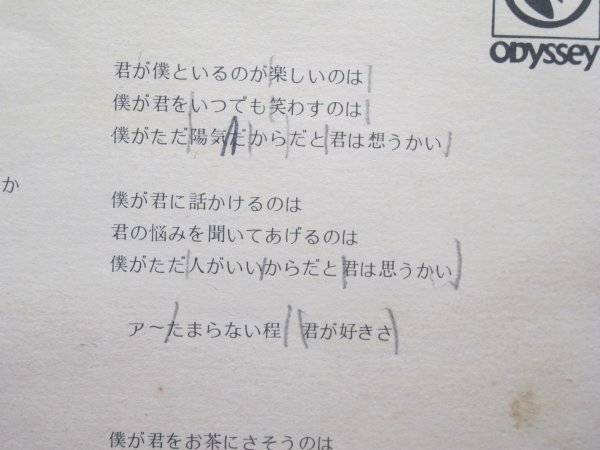 ODYSSEY
君が僕といるのが楽しいのは
僕が君をいつでも笑わすのは
僕がただ陽気だからだと君は想うかい
か
僕が君に話かけるのは
君の悩みを聞いてあげるのは
僕がただ人がいいからだと君は思うかい
ア～たまらない程 君が好きさ
僕が君をお茶にさそうのは